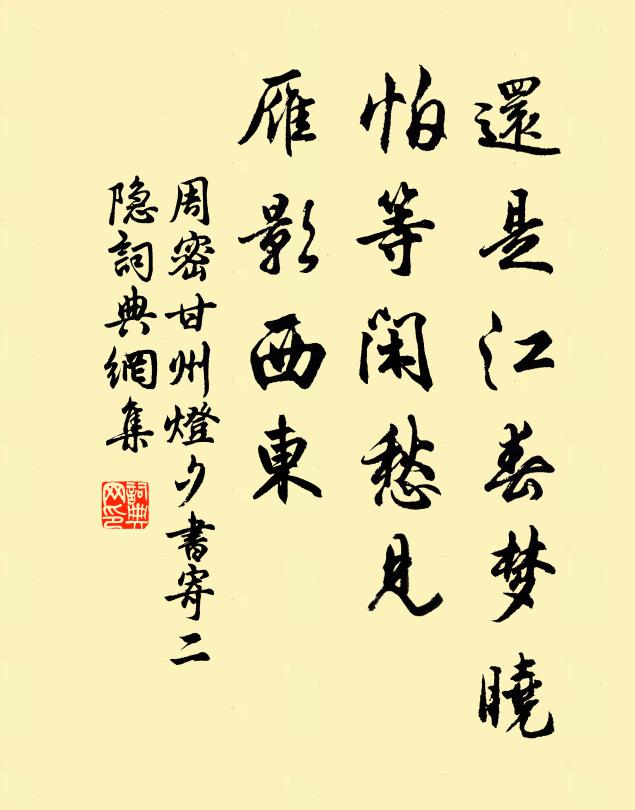 還是江春梦曉
怕等闲愁見
雁影西東
周密甘州燈夕書寄二
隐詞典網集
詞典网印